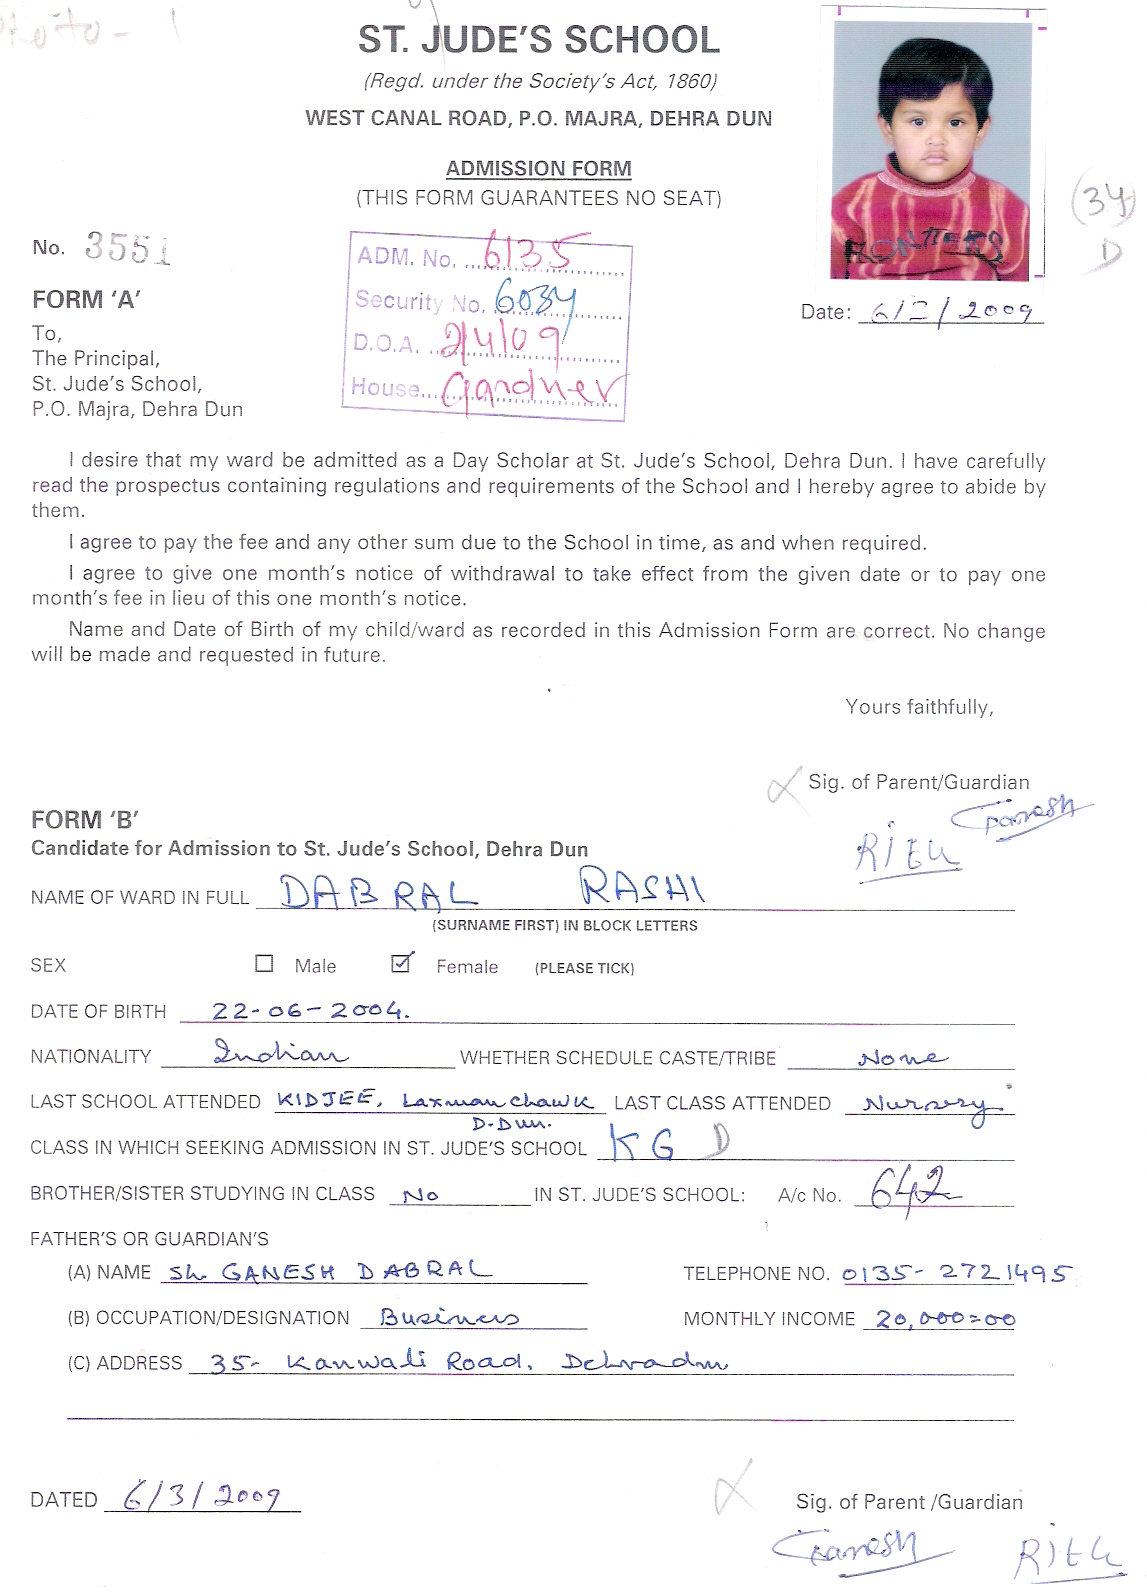 Photo - 1
ST. JUDE'S SCHOOL
(Regd. under the Society's Act, 1860)
WEST CANAL ROAD, P.O. MAJRA, DEHRA DUN
ADMISSION FORM
(THIS FORM GUARANTEES NO SEAT)
FRONTIERS
(34)
D
No. 3551
ADM. No. 6135
Security No. 6034
D.O.A. 2/4/09
House Gardner
Date: 6/3/2009
FORM 'A'
To,
The Principal,
St. Jude's School,
P.O. Majra, Dehra Dun
I desire that my ward be admitted as a Day Scholar at St. Jude's School, Dehra Dun. I have carefully
read the prospectus containing regulations and requirements of the School and I hereby agree to abide by
them.
I agree to pay the fee and any other sum due to the School in time, as and when required.
I agree to give one month's notice of withdrawal to take effect from the given date or to pay one
month's fee in lieu of this one month's notice.
Name and Date of Birth of my child/ward as recorded in this Admission Form are correct. No change
will be made and requested in future.
Yours faithfully,
Sig. of Parent/Guardian
Ganesh
Ritu
FORM 'B'
Candidate for Admission to St. Jude's School, Dehra Dun
NAME OF WARD IN FULL DABRAL RASHI
(SURNAME FIRST) IN BLOCK LETTERS
SEX Male Female (PLEASE TICK)
DATE OF BIRTH 22-06-2004.
NATIONALITY Indian WHETHER SCHEDULE CASTE/TRIBE None
LAST SCHOOL ATTENDED KIDJEE, Laxman chawk LAST CLASS ATTENDED Nursery
D.Dun.
CLASS IN WHICH SEEKING ADMISSION IN ST. JUDE'S SCHOOL KG D
BROTHER/SISTER STUDYING IN CLASS No IN ST. JUDE'S SCHOOL: A/c No. 642
FATHER'S OR GUARDIAN'S
(A) NAME Sh. GANESH DABRAL TELEPHONE NO. 0135-2721495
(B) OCCUPATION/DESIGNATION Business MONTHLY INCOME 20,000=00
(C) ADDRESS 35- Kanwali Road, Dehradun
DATED 6/3/2009
Sig. of Parent /Guardian
Ganesh Ritu